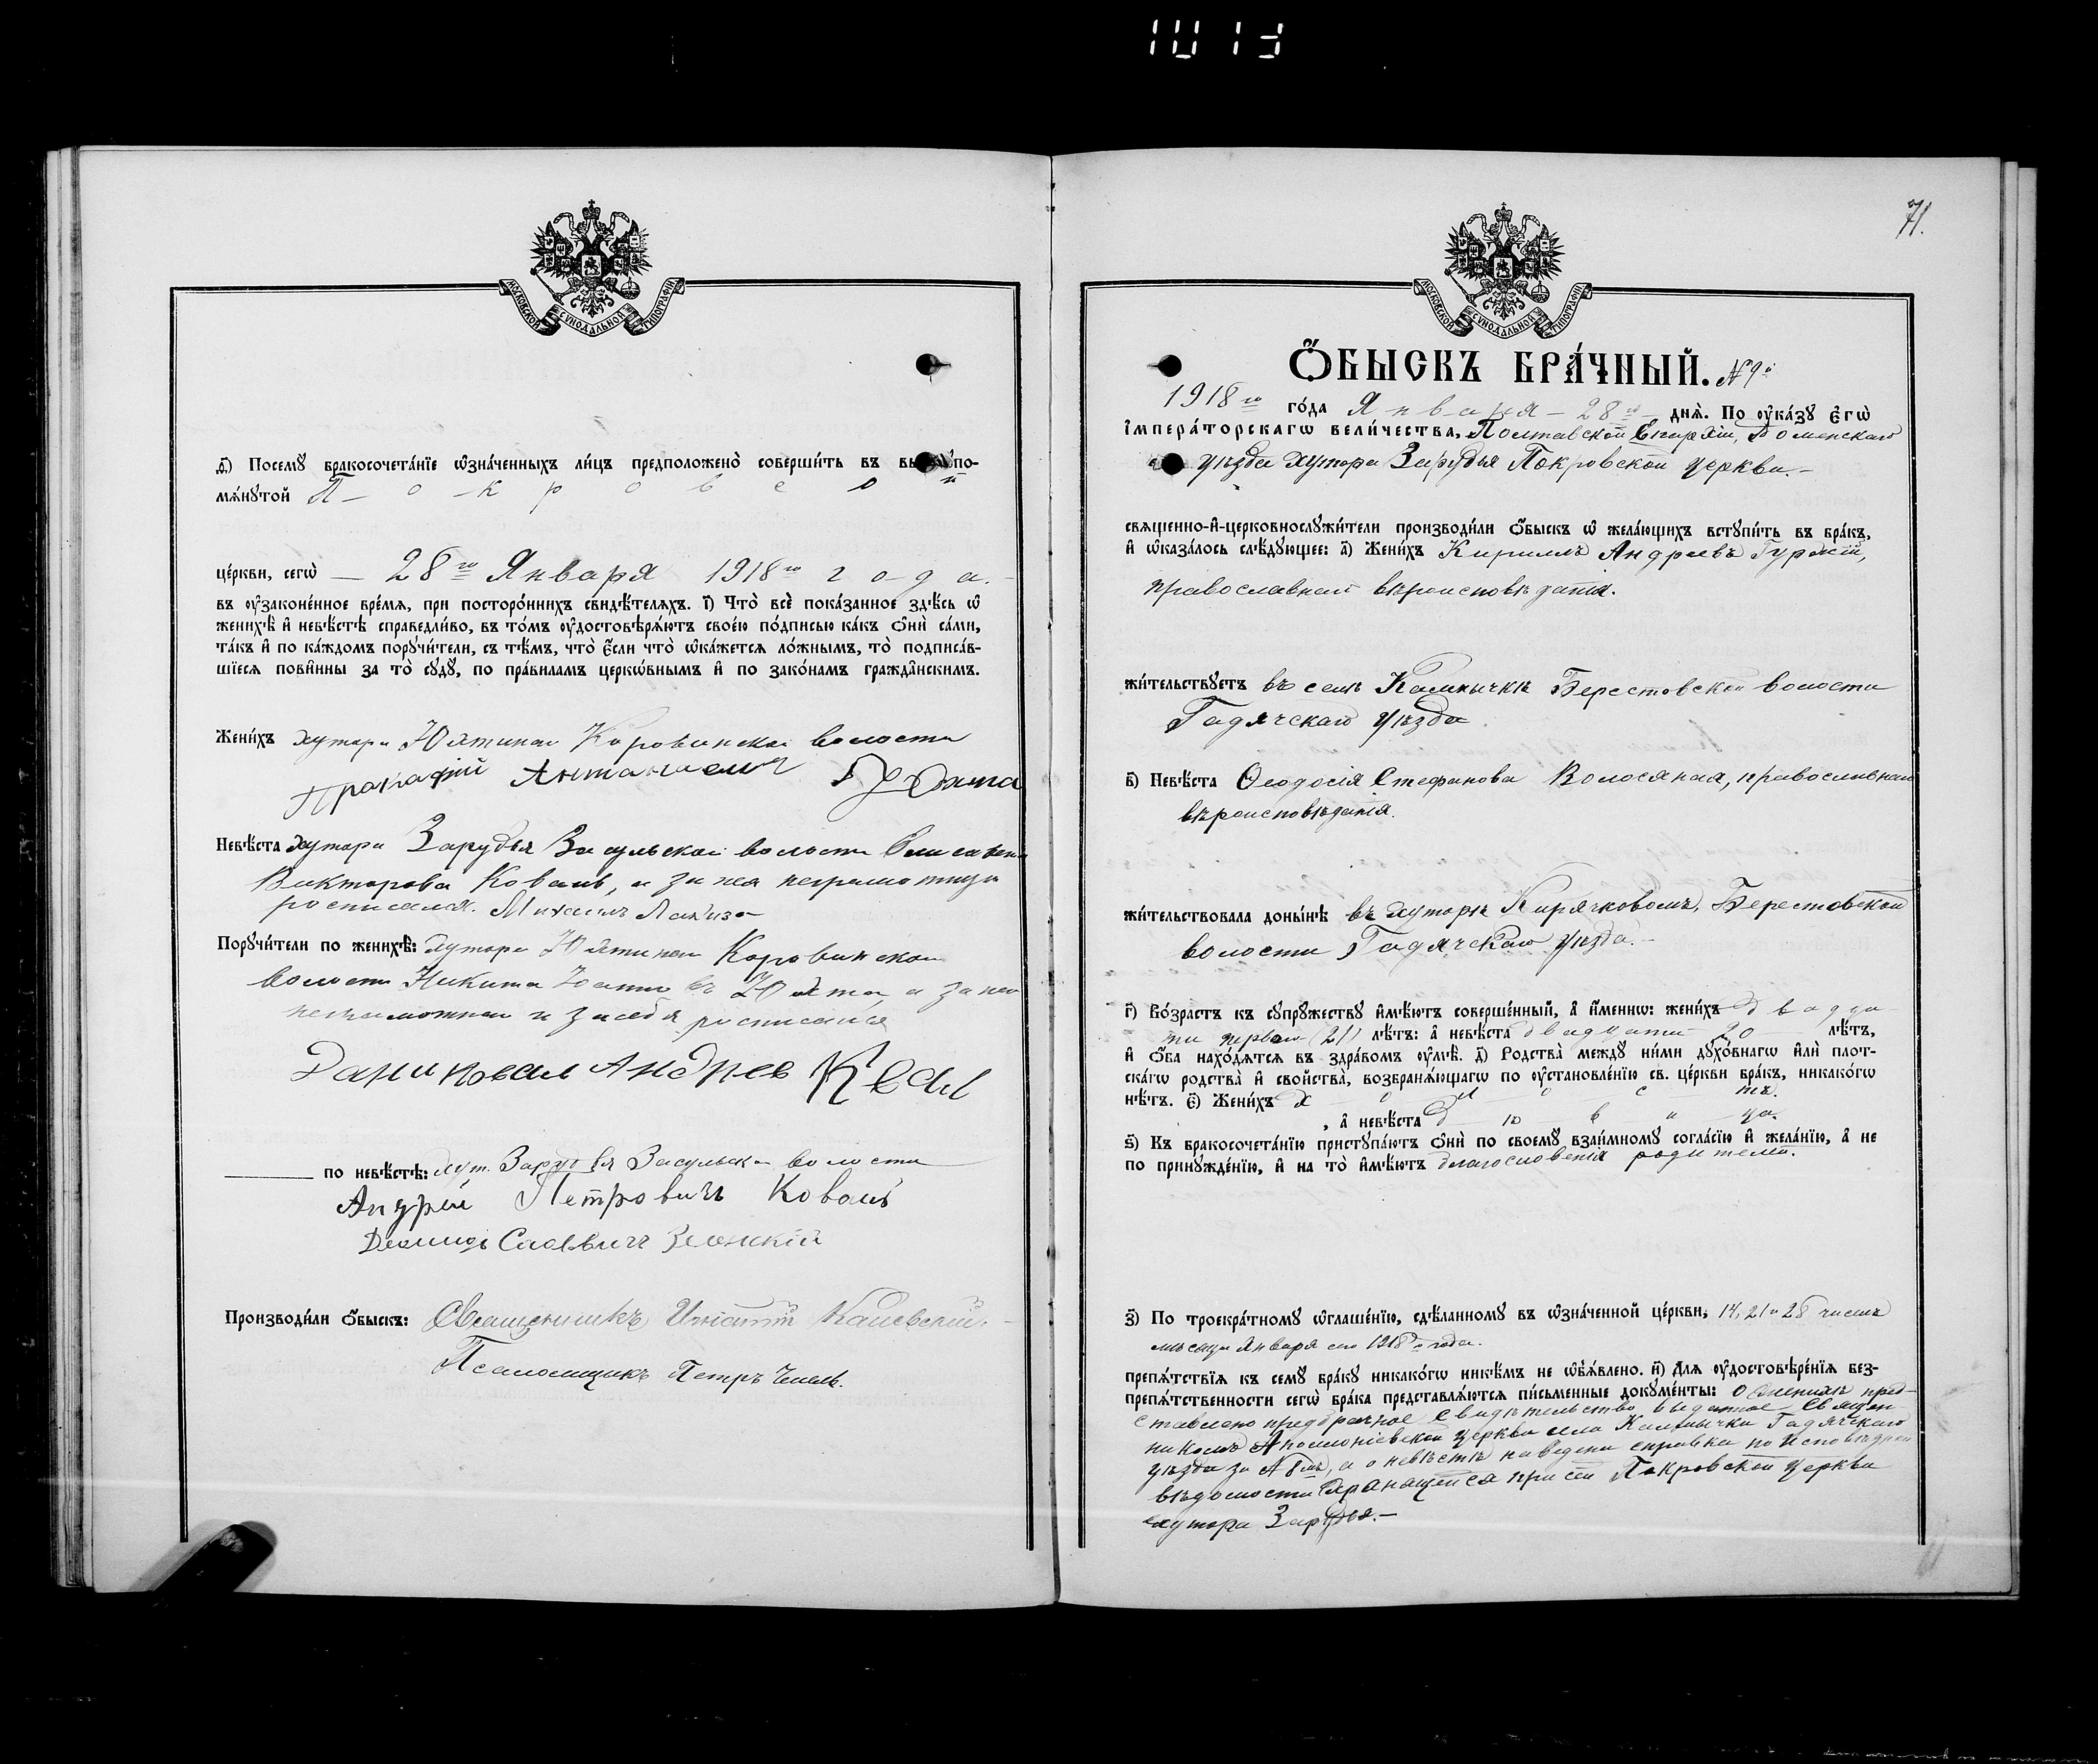 1013
МОСКОВСКОЙ СѴНОДАЛЬНОЙ ТИПОГРАФІИ
ѳ҃) Посемꙋ бракосочета́нїе ѡ҆зна́ченныхъ ли́цъ предположено̀ соверши́ть въ по-
мѧ́нꙋтой Покровской
це́ркви, сегѡ̀ — 28го Января 1918го года.
въ ᲂу҆законе́нное вре́мѧ, при посторо́ннихъ свидѣ́телѧхъ. і҃) Что̀ всѐ пока́занное здѣ́сь ѡ҆
женихѣ̀ и҆ невѣ́стѣ справедли́во, въ то́мъ ᲂу҆достовѣрѧ́ютъ свое́ю по́дписью ка́къ ѻ҆нѝ са́ми,
та́къ и҆ по ка́ждомъ порꙋчи́тели, съ тѣ́мъ, что̀ є҆́сли что̀ ѡ҆ка́жетсѧ ло́жнымъ, то̀ подписа́в-
шїесѧ пови̑нны за то̀ сꙋдꙋ̀, по пра́виламъ церкѡ́внымъ и҆ по зако́намъ гражда̑нскимъ.
Жени́хъ хутора Юятиной Коровинской волости
Пракафій
Невѣ́ста хутора Зарудья Засульской волости
Викторова Коваль, а за нея неграмотную
росписался Михаилъ
Порꙋчи́тели по женихѣ̀: хутора Коровинской
волости Никита
неграмотнаго и за себя росписался
Андрев
по невѣ́стѣ: хут. Зарудья Засульской волости
Андрей Петровичъ Коваль
Савичъ
Производи́ли ѻ҆́быскъ: Священникъ Игнатій
Псаломщикъ Петръ
71.
МОСКОВСКОЙ СѴНОДАЛЬНОЙ ТИПОГРАФІИ
Ѻ҆́БЫСКЪ БРА́ЧНЫЙ. № 9й
1918го го́да Января 28го днѧ̀. По ᲂу҆ка́зꙋ є҆гѡ̀
і҆мпера́торскагѡ вели́чества, Полтавской Епархіи, Роменскаго
уѣзда хутора Зарудья Покровской церкви.—
свѧщенно-и҆-церковнослꙋжи́тели производи́ли ѻ҆́быскъ ѡ҆ жела́ющихъ встꙋпи́ть въ бра́къ,
и҆ ѡ҆каза́лось слѣ́дꙋющее: а҃) Жени́хъ Кириллъ Андреевъ Гурскій,
православнаго вѣроисповѣданія.
жи́тельствꙋетъ въ селѣ Камлычкѣ Берестовской волости
Гадячскаго уѣзда
в҃) Невѣ́ста Ѳеодосія Стефанова Волосяная, православнаго
вѣроисповѣданія.
жи́тельствовала доны́нѣ въ хуторѣ Кирячковомъ, Берестовской
волости, Гадячскаго уѣзда.—
г҃) Во́зрастъ къ сꙋпрꙋ́жествꙋ и҆мѣ́ютъ соверше́нный, а҆ и҆́меннѡ: жени́хъ двадца-
ти перваго (21) лѣ́тъ: а҆ невѣ́ста двадцати 20 лѣ́тъ,
и҆ ѻ҆́ба нахо́дѧтсѧ въ здра́вомъ ᲂу҆мѣ̀. д҃) Родства̀ междꙋ̀ ни́ми дꙋхо́внагѡ и҆лѝ плот-
ска́гѡ родства̀ и҆ свойства̀, возбранѧ́ющагѡ по ᲂу҆становле́нїю св. це́ркви бра́къ, никако́гѡ
нѣ́тъ. є҃) Жени́хъ холостъ.
, а҆ невѣ́ста дѣвица.
ѕ҃) Къ бракосочета́нїю пристꙋпа́ютъ ѻ҆нѝ по своемꙋ̀ взаи́мномꙋ согла́сїю и҆ жела́нїю, а҆ не
по принꙋжде́нїю, и҆ на то̀ и҆мѣ́ютъ благословенія родителей.
з҃) По троекра́тномꙋ ѡ҆глаше́нїю, сдѣ́ланномꙋ въ ѡ҆зна́ченной це́ркви, 14, 21 и 28 чиселъ
мѣсяца Января 1918го года.
препѧ́тствїѧ къ семꙋ̀ бра́кꙋ никако́гѡ никѣ́мъ не ѡ҆б̾ѧ́влено. и҃) Длѧ̀ ᲂу҆достовѣре́нїѧ без-
препѧ́тственности сегѡ̀ бра́ка представлѧ́ютсѧ пи́сьменные докꙋме́нты: О женихѣ пред-
ставлено предбрачное свидѣтельство выданное Священ-
никомъ Аполлоніевской церкви села Камлычки Гадячскаго
уѣзда за № 8мъ, а о невѣстѣ наведена справка по Исповѣдной
вѣдомости хранящейся при сей Покровской церкви
хутора Зарудья.—